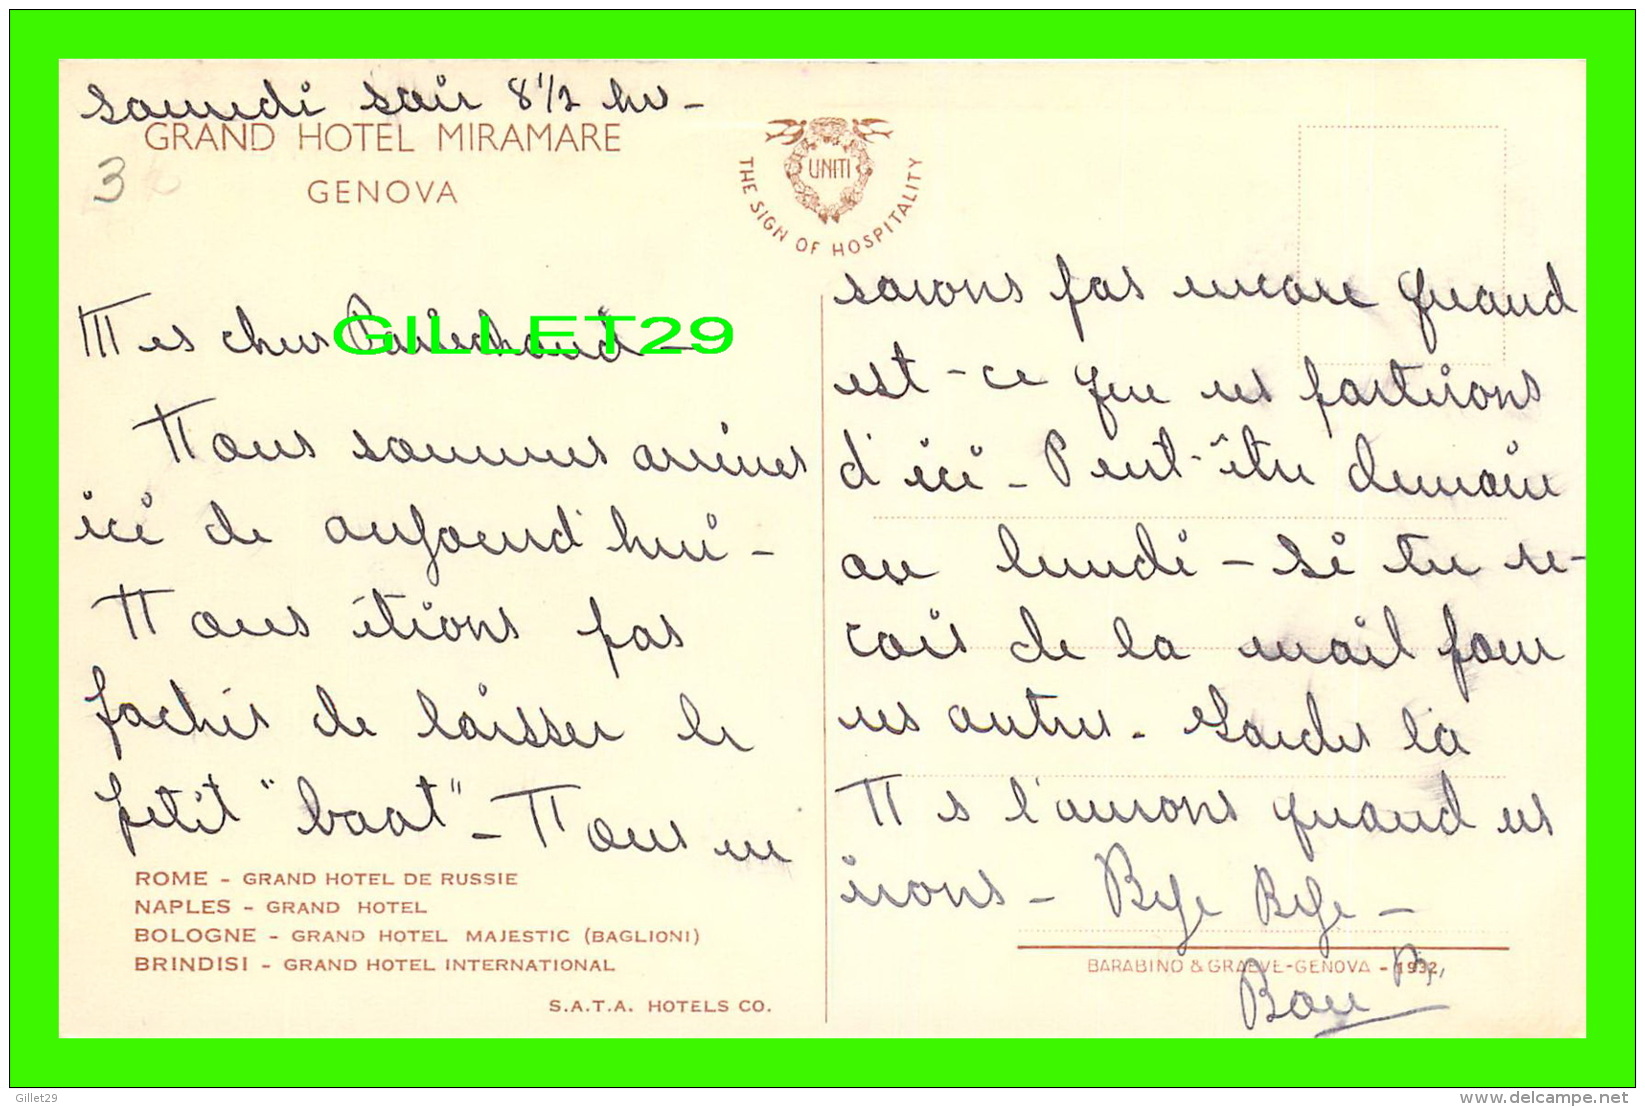 samedi soir 8 1/2 hrs -
GRAND HOTEL MIRAMARE
GENOVA
3
UNITI
THE SIGN OF HOSPITALITY
Mes chers
GILLET29
Nous sommes arrivés
ici de aujourd'hui -
Nous étions pas
fachés de laisser le
petit "boat" - Nous ne
ROME - GRAND HOTEL DE RUSSIE
NAPLES - GRAND HOTEL
BOLOGNE - GRAND HOTEL MAJESTIC (BAGLIONI)
BRINDISI - GRAND HOTEL INTERNATIONAL
S.A.T.A. HOTELS CO.
savons pas encore quand
est-ce que ns partirons
d'ici - Peut-être demain
ou lundi - Si tu re-
çois de la mail pour
ns autres - Gardes la
Ns l'aurons quand ns
irons - Bye Bye -
BARABINO & GRAEVE-GENOVA - 1932
Bou B,
Gillet29
www.delcampe.net